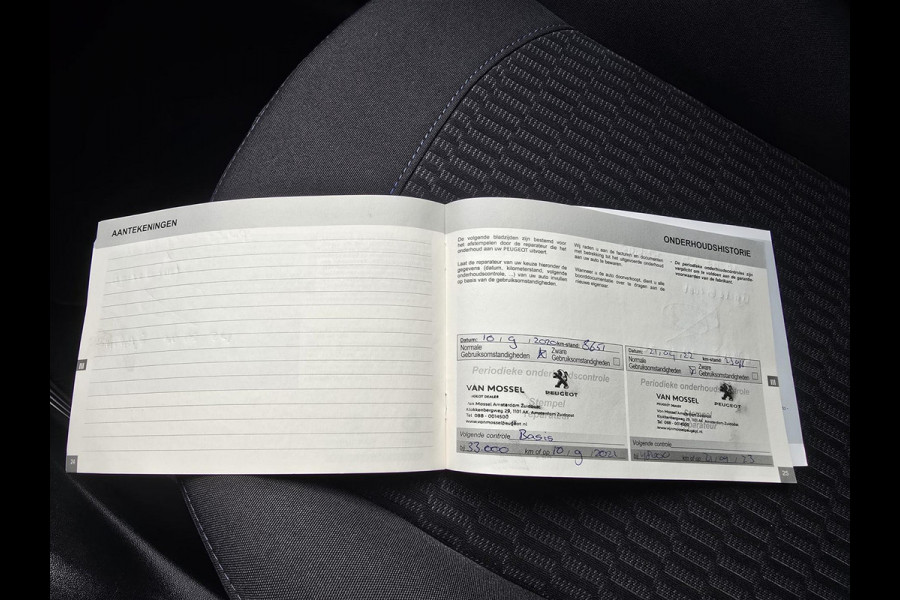 AANTEKENINGEN
ONDERHOUDSHISTORIE
De volgende bladzijden zijn bestemd voor
het afstempelen door de reparateur die het
onderhoud aan uw PEUGEOT uitvoert.
Laat de reparateur van uw keuze hieronder de
gegevens (datum, kilometerstand, volgende
onderhoudscontrole, ...) van uw auto invullen
op basis van de genruiksomstandigheden.
Wij raden u aan de facturen en documenten
met betrekking tot het uitgevoerde onderhoud
aan uw auto te bewaren.
Wanneer u de auto doorverkoopt, dient u alle
boorddocumentatie over te dragen aan de
nieuwe eigenaar.
- De periodieke onderhoudscontroles zijn
verplicht om te voldoen aan de garantie
voorwaarden van de fabrikant.
Datum: 10, 9, 2020 km-stand: 8651
Normale Gebruiksomstandigheden x Zware Gebruiksomstandigheden
Periodieke onderhoudscontrole
VAN MOSSEL
PEUGEOT DEALER
PEUGEOT
Van Mossel Amsterdam Zuidoost
Klokkenbergweg 29, 1101 AK Amsterdam Zuidoost
Tel. 088 - 0014500
www.vanmosselpeugeot.nl
Stempel
reparateur
Volgende controle Basis
bij 33 000 km of op 10, 9, 2021
Datum: 21, 09, 22 km-stand:
Normale Gebruiksomstandigheden Zware Gebruiksomstandigheden
Periodieke onderhoudscontrole
VAN MOSSEL
PEUGEOT DEALER
PEUGEOT
Van Mossel Amsterdam Zuidoost
Klokkenbergweg 29, 1101 AK Amsterdam Zuidoost
Tel. 088 - 0014500
www.vanmosselpeugeot.nl
Stempel
reparateur
Volgende controle
bij km of op 21, 09, 23
24
25